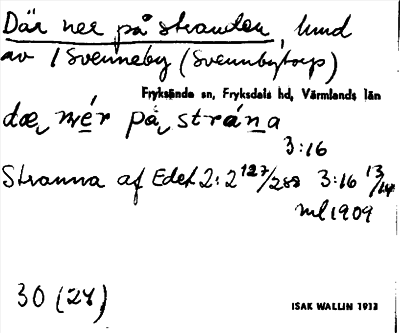 Där ner på stranden, hmd
av 1 Svenneby (Svennbytorp)
Fryksände sn, Fryksdals hd, Värmlands län
dæ, nér på, strána
3:16
Stranna af Edet 2:2 127/288 3:16 13/14
ml 1909
30 (24)
ISAK WALLIN 1913